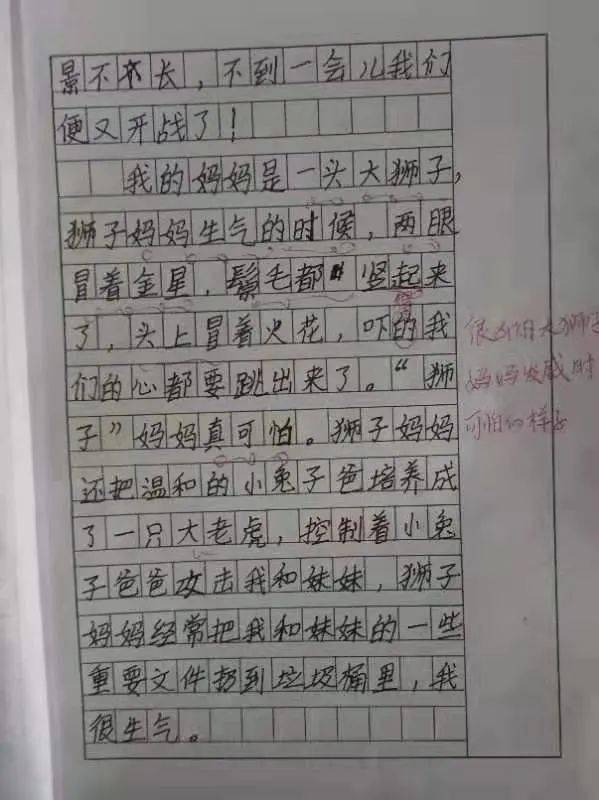 景不长，不到一会儿我们
便又开战了！
我的妈妈是一头大狮子，
狮子妈妈生气的时候，两眼
冒着金星，鬃毛都“竖起来
了，头上冒着火花，吓的我
们的心都要跳出来了。“狮
子”妈妈真可怕。狮子妈妈
还把温和的小兔子爸培养成
了一只大老虎，控制着小兔
子爸爸攻击我和妹妹，狮子
妈妈经常把我和妹妹的一些
重要文件扔到垃圾桶里，我
很生气。
大狮子
妈妈发威时
可怕的样子